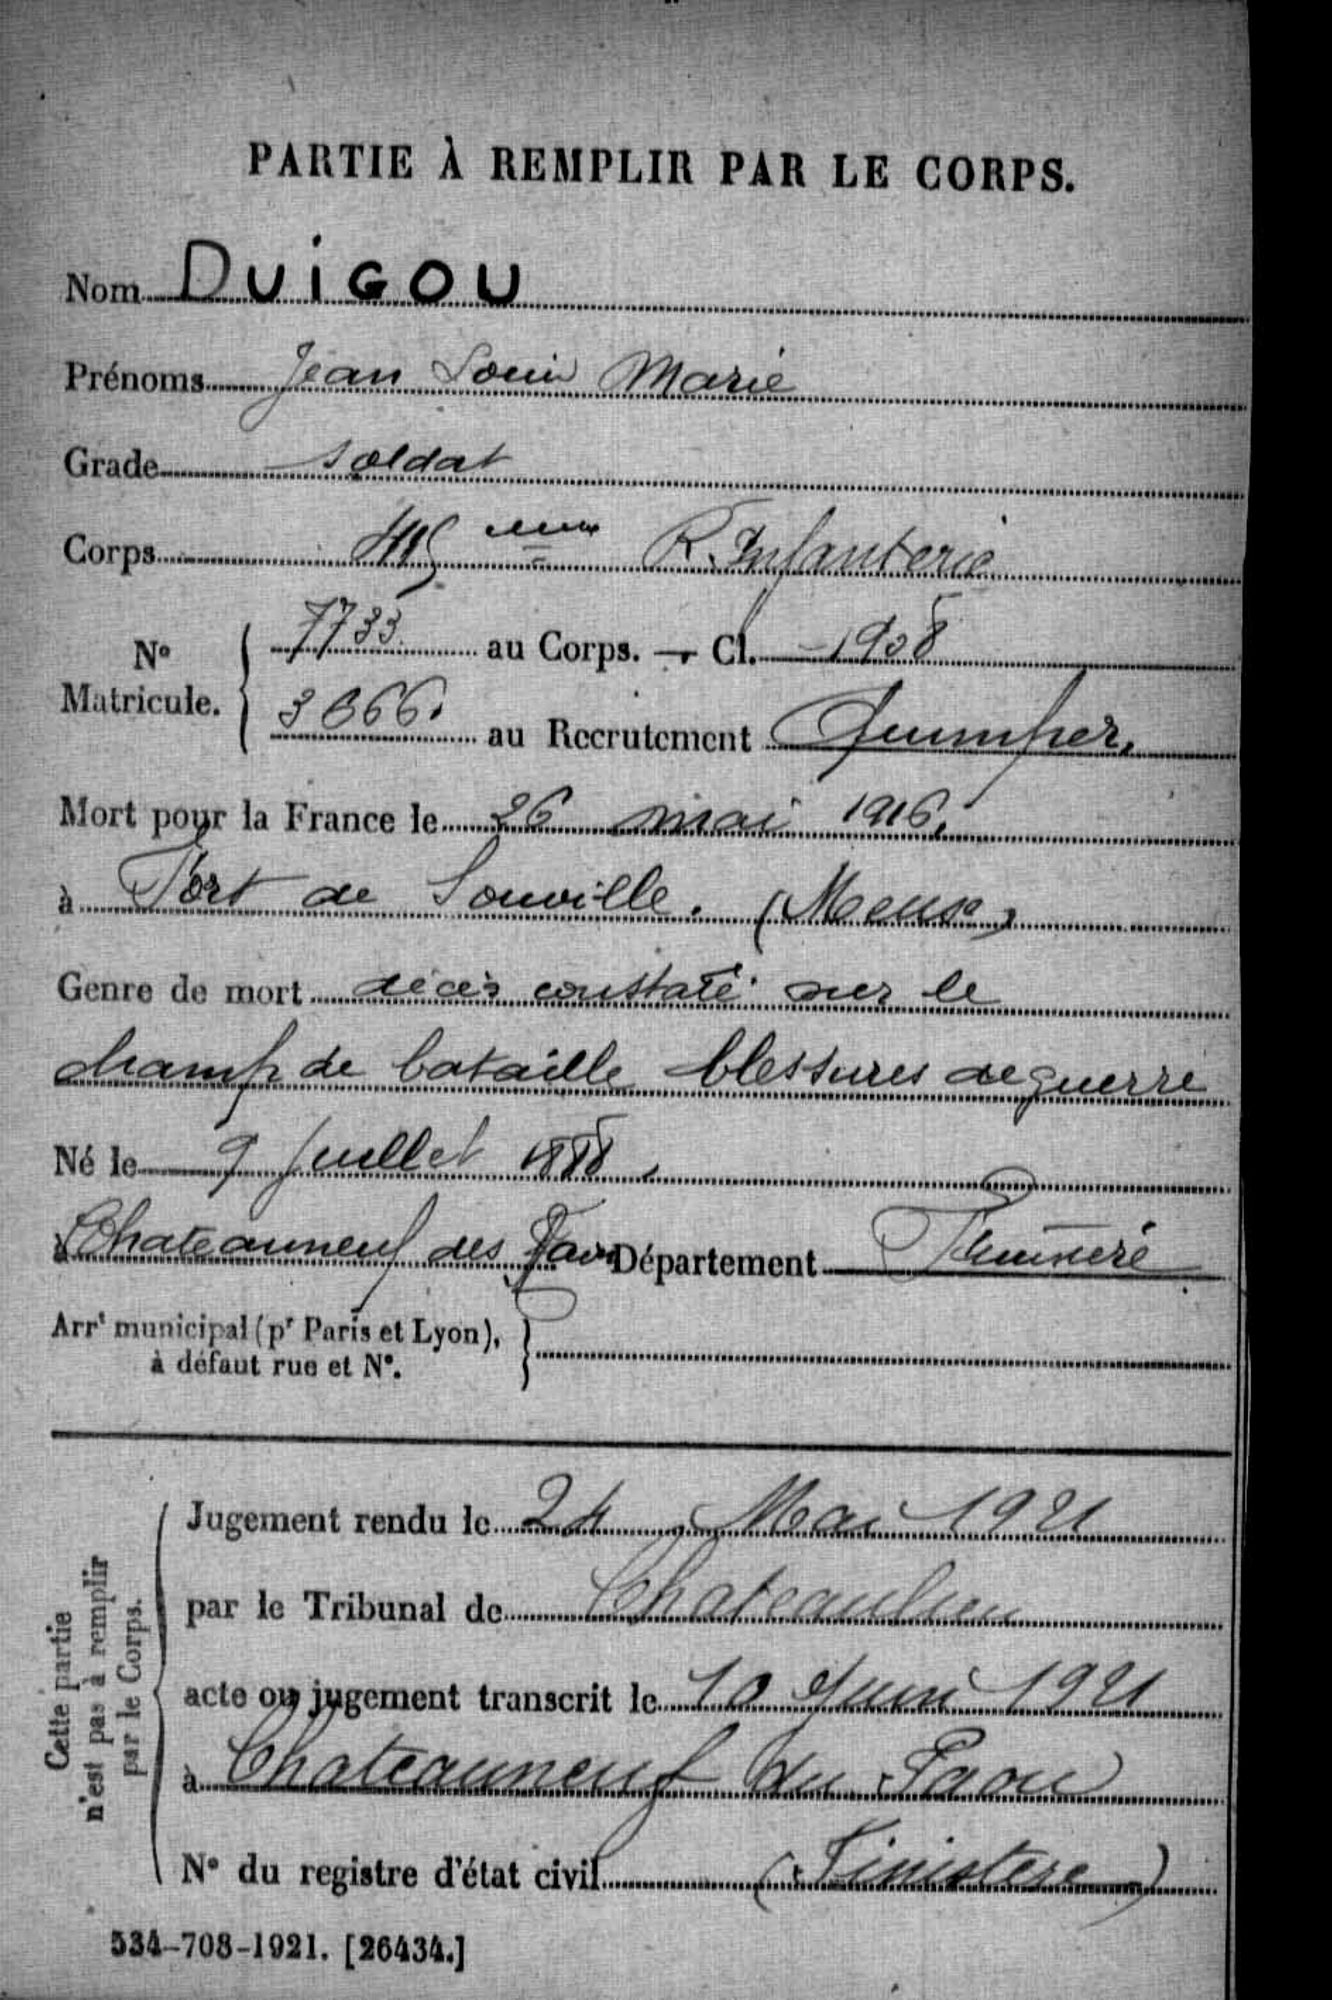 PARTIE À REMPLIR PAR LE CORPS.
Nom DUIGOU
Prénoms Jean Louis Marie
Grade soldat
Corps 415 eme R. Infanterie
N° Matricule. 7735 au Corps. — Cl. 1908
3666. au Recrutement Quimper.
Mort pour la France le 26 mai 1916.
à Fort de Souville. (Meuse)
Genre de mort décès constaté sur le
champ de bataille blessures de guerre
Né le 9 Juillet 1888.
à Chateauneuf des Faou Département Finistère
Arrt municipal (pr Paris et Lyon),
à défaut rue et N°.
Cette partie
n'est pas à remplir
par le Corps.
Jugement rendu le 24 Mai 1921
par le Tribunal de Chateaulin
acte ou jugement transcrit le 10 Juin 1921
à Chateauneuf du Faou
N° du registre d'état civil (Finistere)
534-708-1921. [26434.]